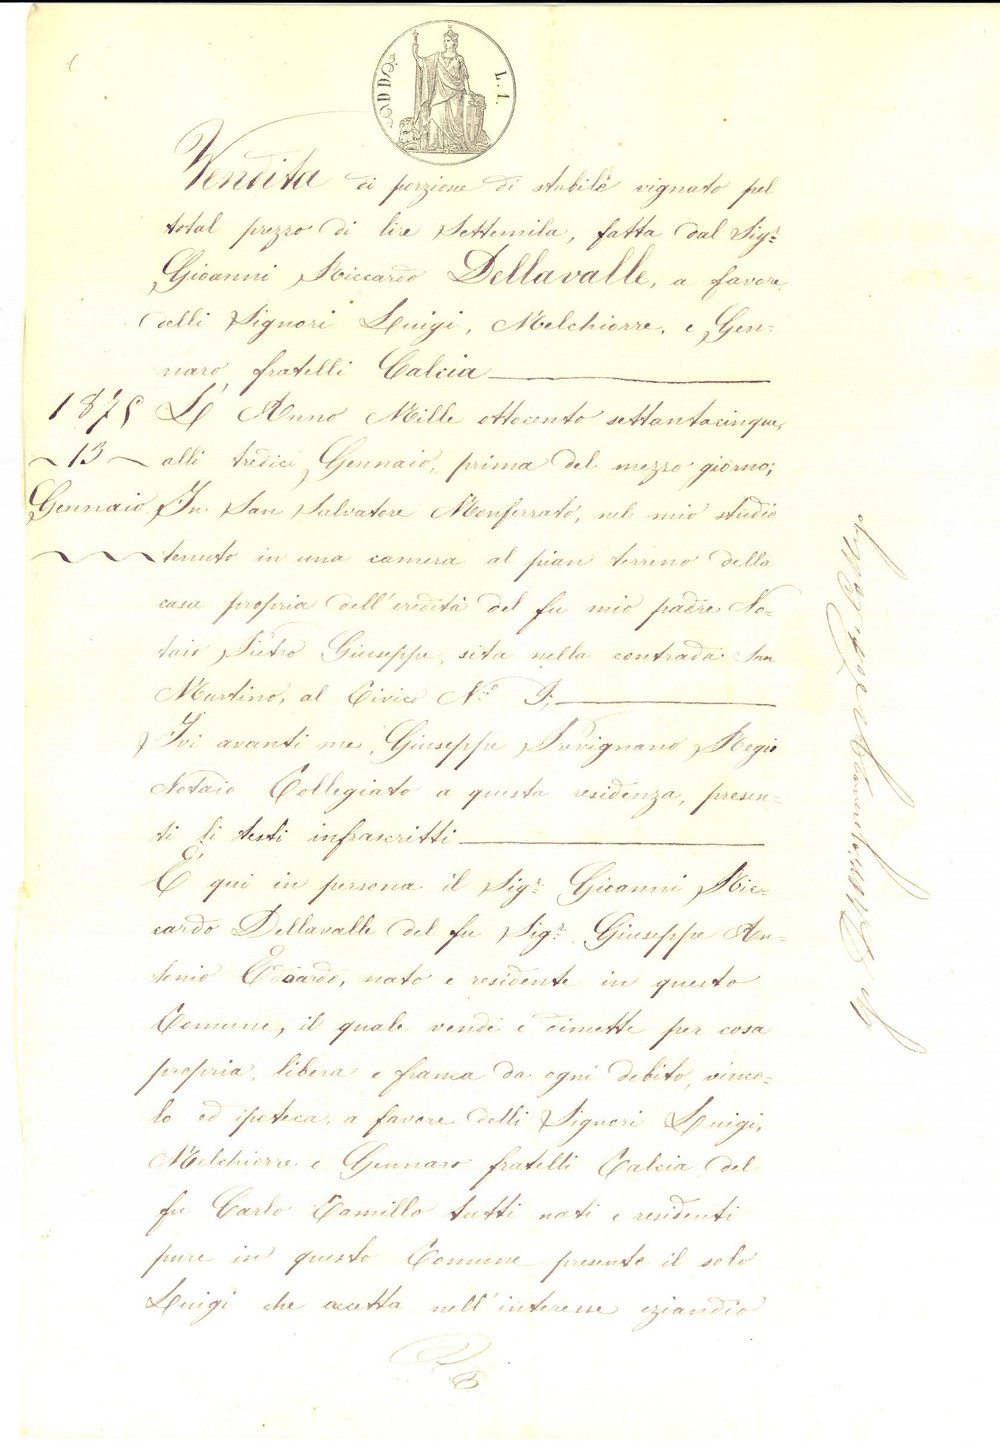 L. 1.
Vendita di porzione di stabile vignato pel
total prezzo di lire Settemila, fatta dal Sig.r
Gioanni Riccardo Dellavalle, a favore
delli Signori Luigi, Melchiorre, e Gen=
naro, fratelli Calcia
1875
13
Gennaio
L'Anno Mille ottocento settantacinque,
alli tredici Gennaio, prima del mezzo giorno;
In San Salvatore Monferrato, nel mio studio
tenuto in una camera al pian terreno della
casa propria dell'eredità del fu mio padre No=
taio Pietro Giuseppe, sita nella contrada San
Martino, al Civico N.o
Ivi avanti me Giuseppe Regio
Notaio Collegiato a questa residenza, presen=
ti li testi infrascritti
E qui in persona il Sig.r Gioanni Ric=
cardo Dellavalle del fu Sig.r Giuseppe An=
tonio Edoardo, nato e residente in questo
Comune, il quale vende e dimette per cosa
propria, libera e franca da ogni debito, vinco=
lo ed ipoteca, a favore delli Signori Luigi,
Melchiorre e Gennaro fratelli Calcia del
fu Carlo Camillo tutti nati e residenti
pure in questo Comune presente il solo
Luigi che accetta nell'interesse eziandio